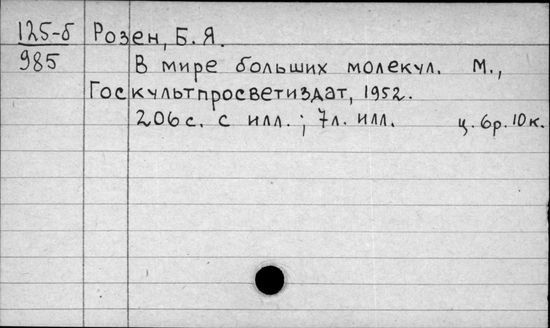 125-б Розен, Б. Я.
985
В мире больших молекул. М.,
Госкультпросветиздат, 1952.
206 с. с илл.; 7 л. илл. ц. 6 р. 10 к.